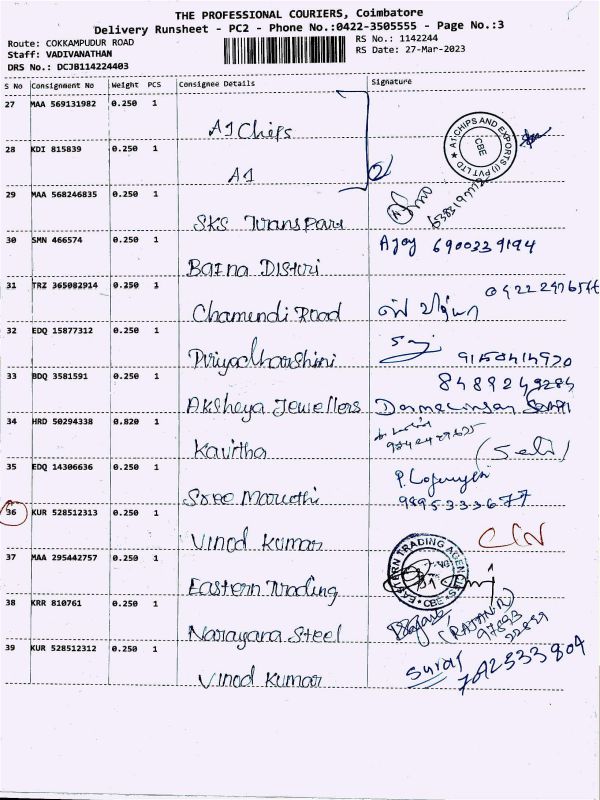 THE PROFESSIONAL COURIERS, Coimbatore
Delivery Runsheet - PC2 - Phone No.:0422-3505555 - Page No.:3
Route: COKKAMPUDUR ROAD
RS No.: 1142244
Staff: VADIVANATHAN
RS Date: 27-Mar-2023
DRS No.: DCJB114224403
S No Consignment No Weight PCS Consignee Details Signature
27 MAA 569131982 0.250 1
A1 Chips
A1 CHIPS AND EXPORTS (I) PVT LTD ★
CBE
28 KDI 815839 0.250 1
A1
2
29 MAA 568246835 0.250 1
SKS Transport
30 SMN 466574 0.250 1
Ajay 6900339194
Barna Distri
31 TRZ 365082914 0.250 1
Chamundi Road
32 EDQ 15877312 0.250 1
Priyadharshini
33 BDQ 3581591 0.250 1
Akshaya Jewellers
34 HRD 50294338 0.820 1
Kavitha
(Selvi)
35 EDQ 14306636 0.250 1
Sree Maruthi
9895333677
36 KUR 528512313 0.250 1
Vinod Kumar
C/N
37 MAA 295442757 0.250 1
Eastern Trading
EASTERN TRADING AGENCIES
★ CBE ★
38 KRR 810761 0.250 1
Narayana Steel
(RATAN.R)
39 KUR 528512312 0.250 1
Vinod Kumar
Suraj